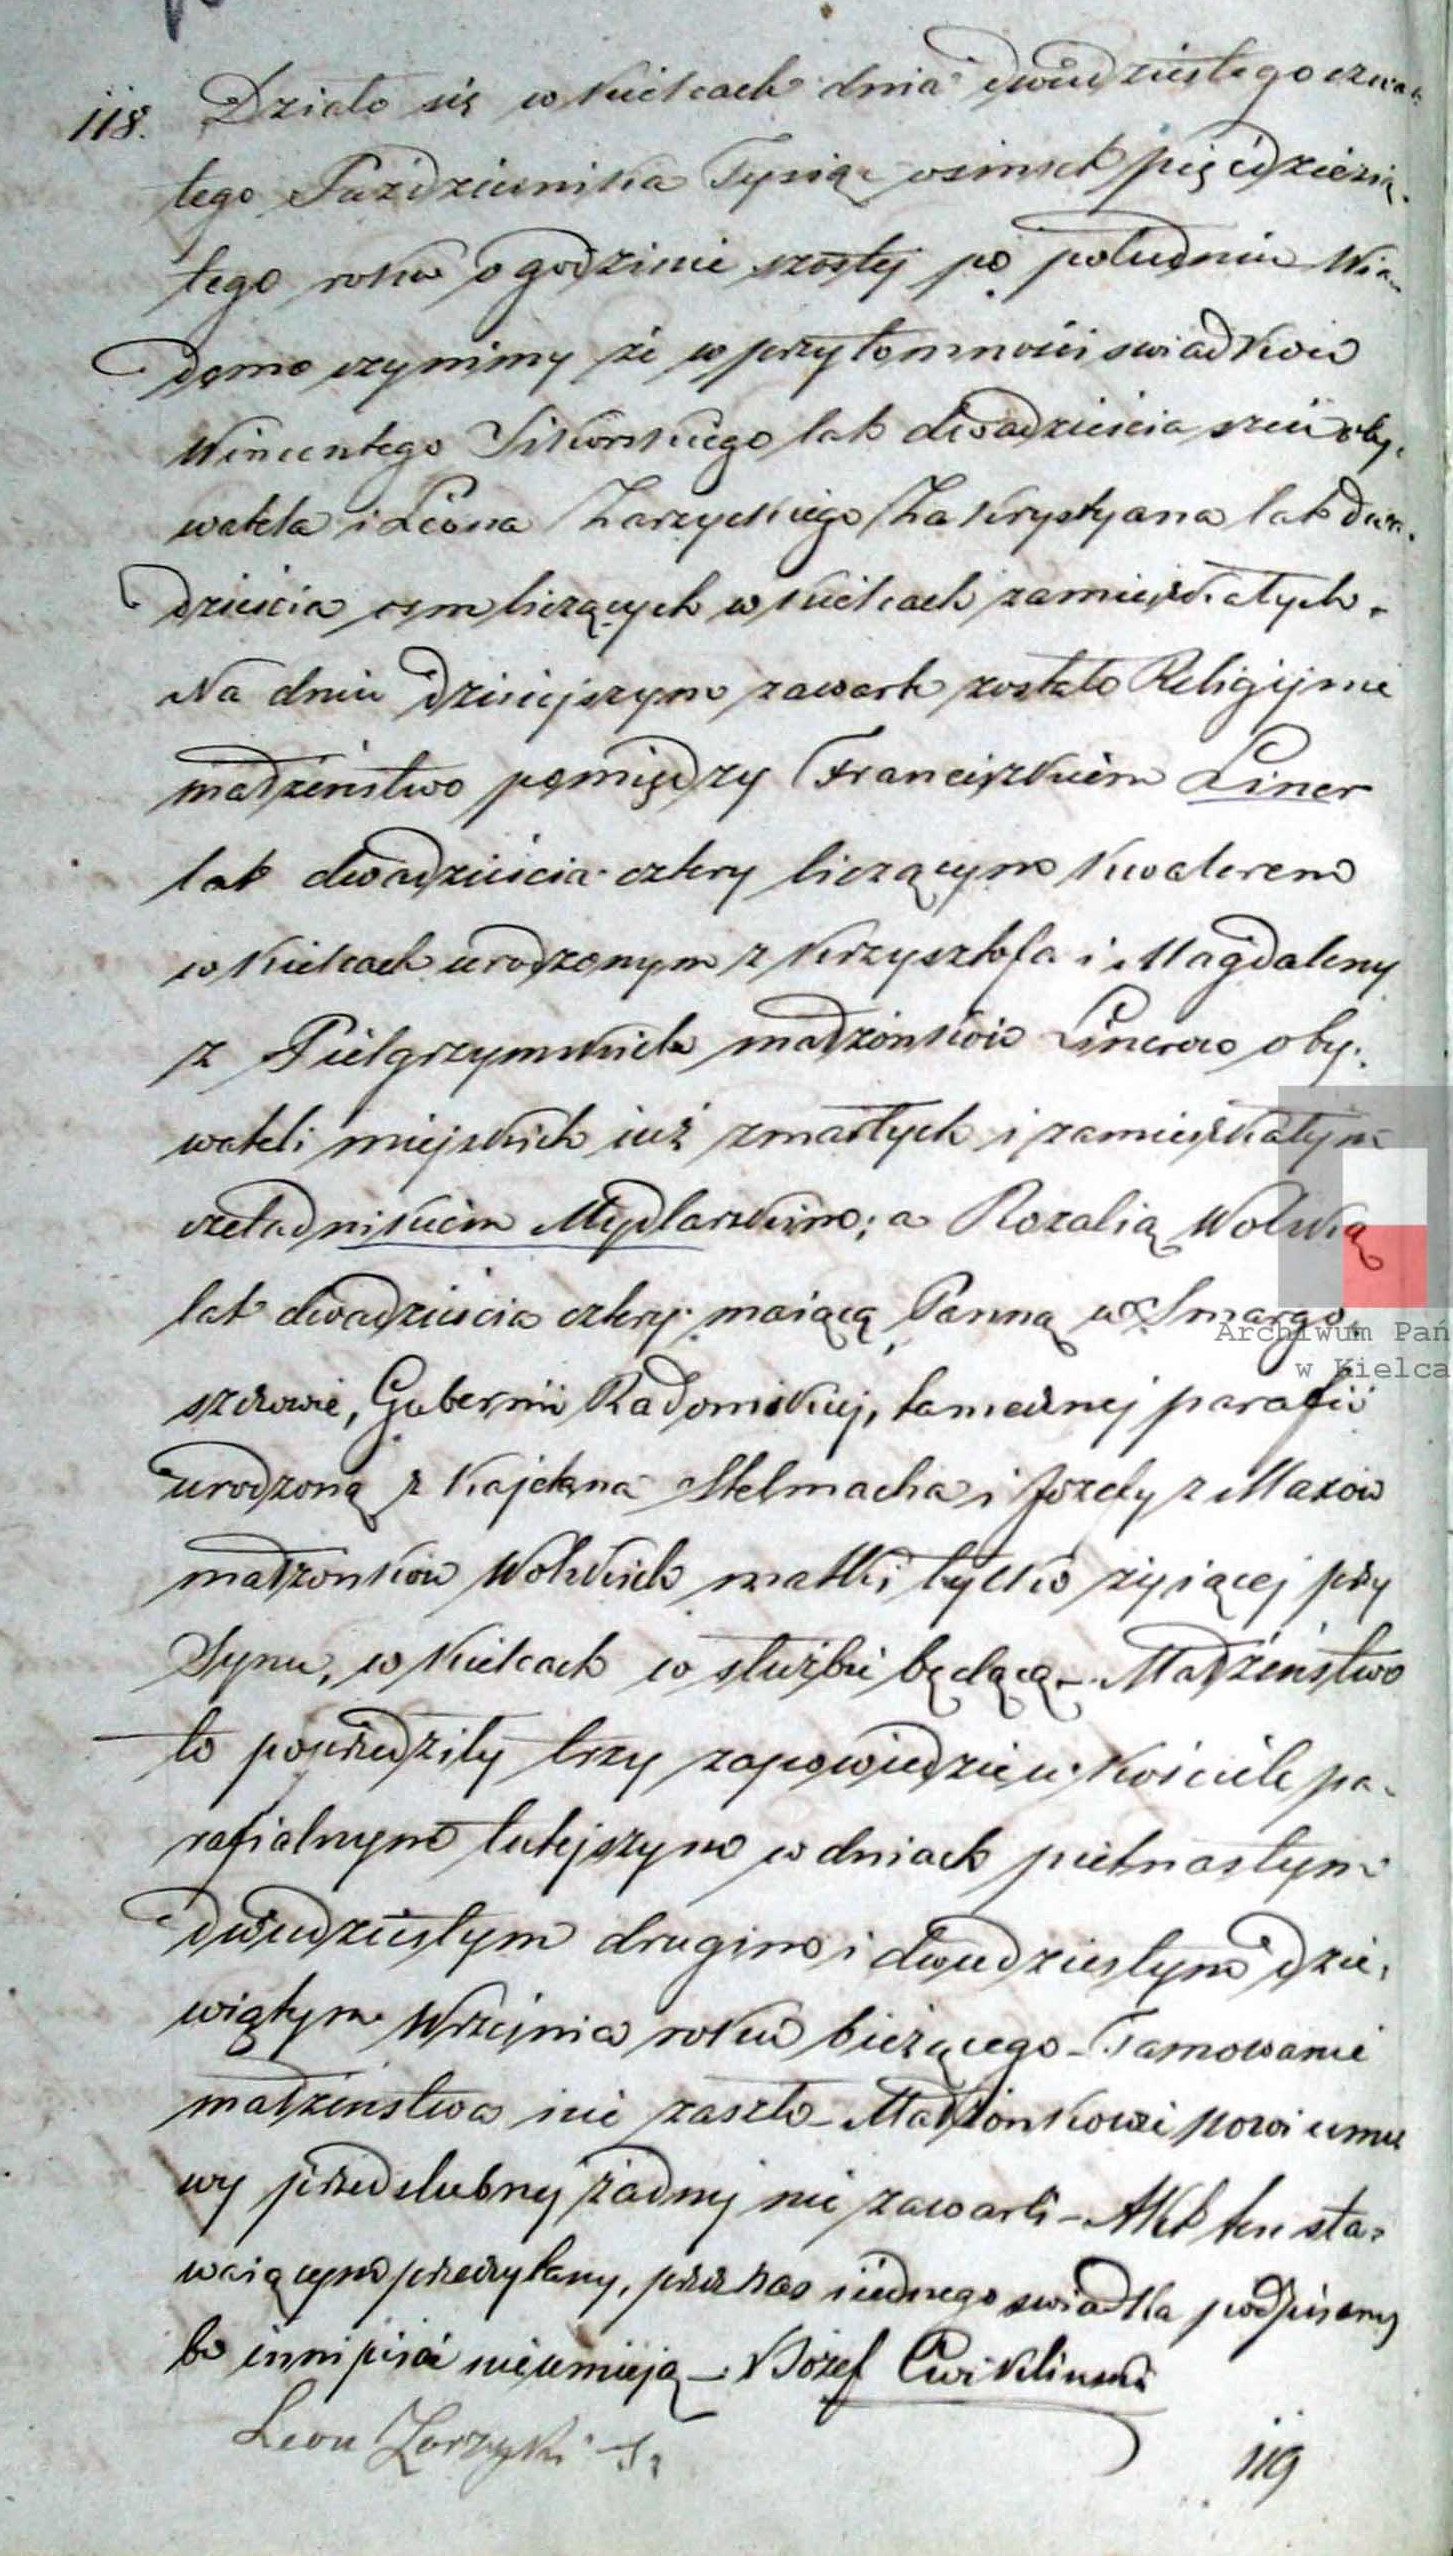 118. Działo się w Kielcach dnia dwudziestego czwar-
tego Października Tysiąc osimset pięćdziesią-
tego roku o godzinie szóstej po południu Wia-
domo czynimy że w przytomności swiadków
Wincentego Sikorskiego lat dwadzieścia sześć oby-
watela i Leona Zarzyckiego Zakrystyana lat dwa-
dzieścia osm liczących w Kielcach zamieszkałych -
Na dniu dzisiejszym zawarte zostało Religijnie
małżeństwo pomiędzy Franciszkiem Liner
lat dwadzieścia cztery liczącym Kwalerem
w Kielcach urodzonym z Krzysztofa i Magdaleny
z Pielgrzymskich małżonków Linerów oby-
wateli miejskich już zmarłych i zamieszkałym
czeladnikiem Mydlarskim; a Rozalią Wolską
lat dwadzieścia cztery maiącą Panną w Smargo-
szowie, Gubernii Radomskiej, tamecznej parafii
urodzoną z Kajetana Stelmacha i Józefy z Mazów
małżonków Wolskich matki tylko żyiącej przy
Synu, w Kielcach w służbie będącą - Małżeństwo
to poprzedziły trzy zapowiedzie w Kościele pa-
rafialnym tutejszym w dniach pietnastym
dwudziestym drugim i dwudziestym dzie-
wiątym Września roku bieżącego - Tamowanie
małżeństwa nie zaszło - Małżonkowie nowi umo
wy przedslubnej żadnej nie zawarli - Akt ten sta-
waiącym przeczytany, przez Nas i iednego swiadka podpisany
bo inni pisać nieumieją - X Józef Cwikliński
Leon Zarzycki Sś
119
Archiwum Pań
w Kielca